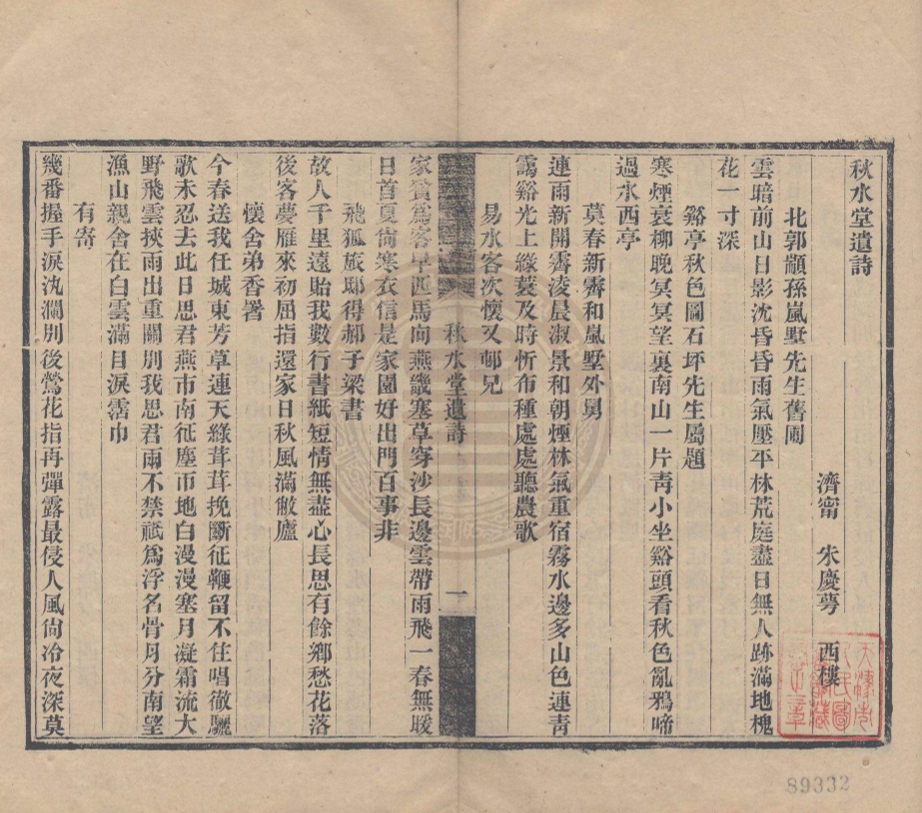 秋水堂遺詩
濟甯　朱慶萼　西樸
北郭顓孫嵐墅先生舊圃
雲暗前山日影沈昏昏雨氣壓平林荒庭盡日無人跡滿地槐
花一寸深
谿亭秋色圖石坪先生屬題
寒煙衰柳晚冥冥望裏南山一片靑小坐谿頭看秋色亂鴉啼
過水西亭
莫春新霽和嵐墅外舅
連雨新開霽淩晨淑景和朝煙林氣重宿霧水邊多山色連靑
靄谿光上綠蓑及時忻布種處處聽農歌
易水客次懷又邨兄
秋水堂遺詩
一
家貧爲客早匹馬向燕畿塞草穿沙長邊雲帶雨飛一春無暖
日首夏尙寒衣信是家園好出門百事非
飛狐旅邸得郝子梁書
故人千里遠貽我數行書紙短情無盡心長思有餘鄉愁花落
後客夢雁來初屈指還家日秋風滿敝廬
懷舍弟香署
今春送我任城東芳草連天綠茸茸挽斷征鞭留不住唱徹驪
歌未忍去此日思君燕市南征塵帀地白漫漫塞月凝霜流大
野飛雲挾雨出重關別我思君兩不禁祇爲浮名骨月分南望
漁山親舍在白雲滿目淚霑巾
有寄
幾番握手淚汍瀾別後鶯花指再彈露最侵人風尙冷夜深莫
89332